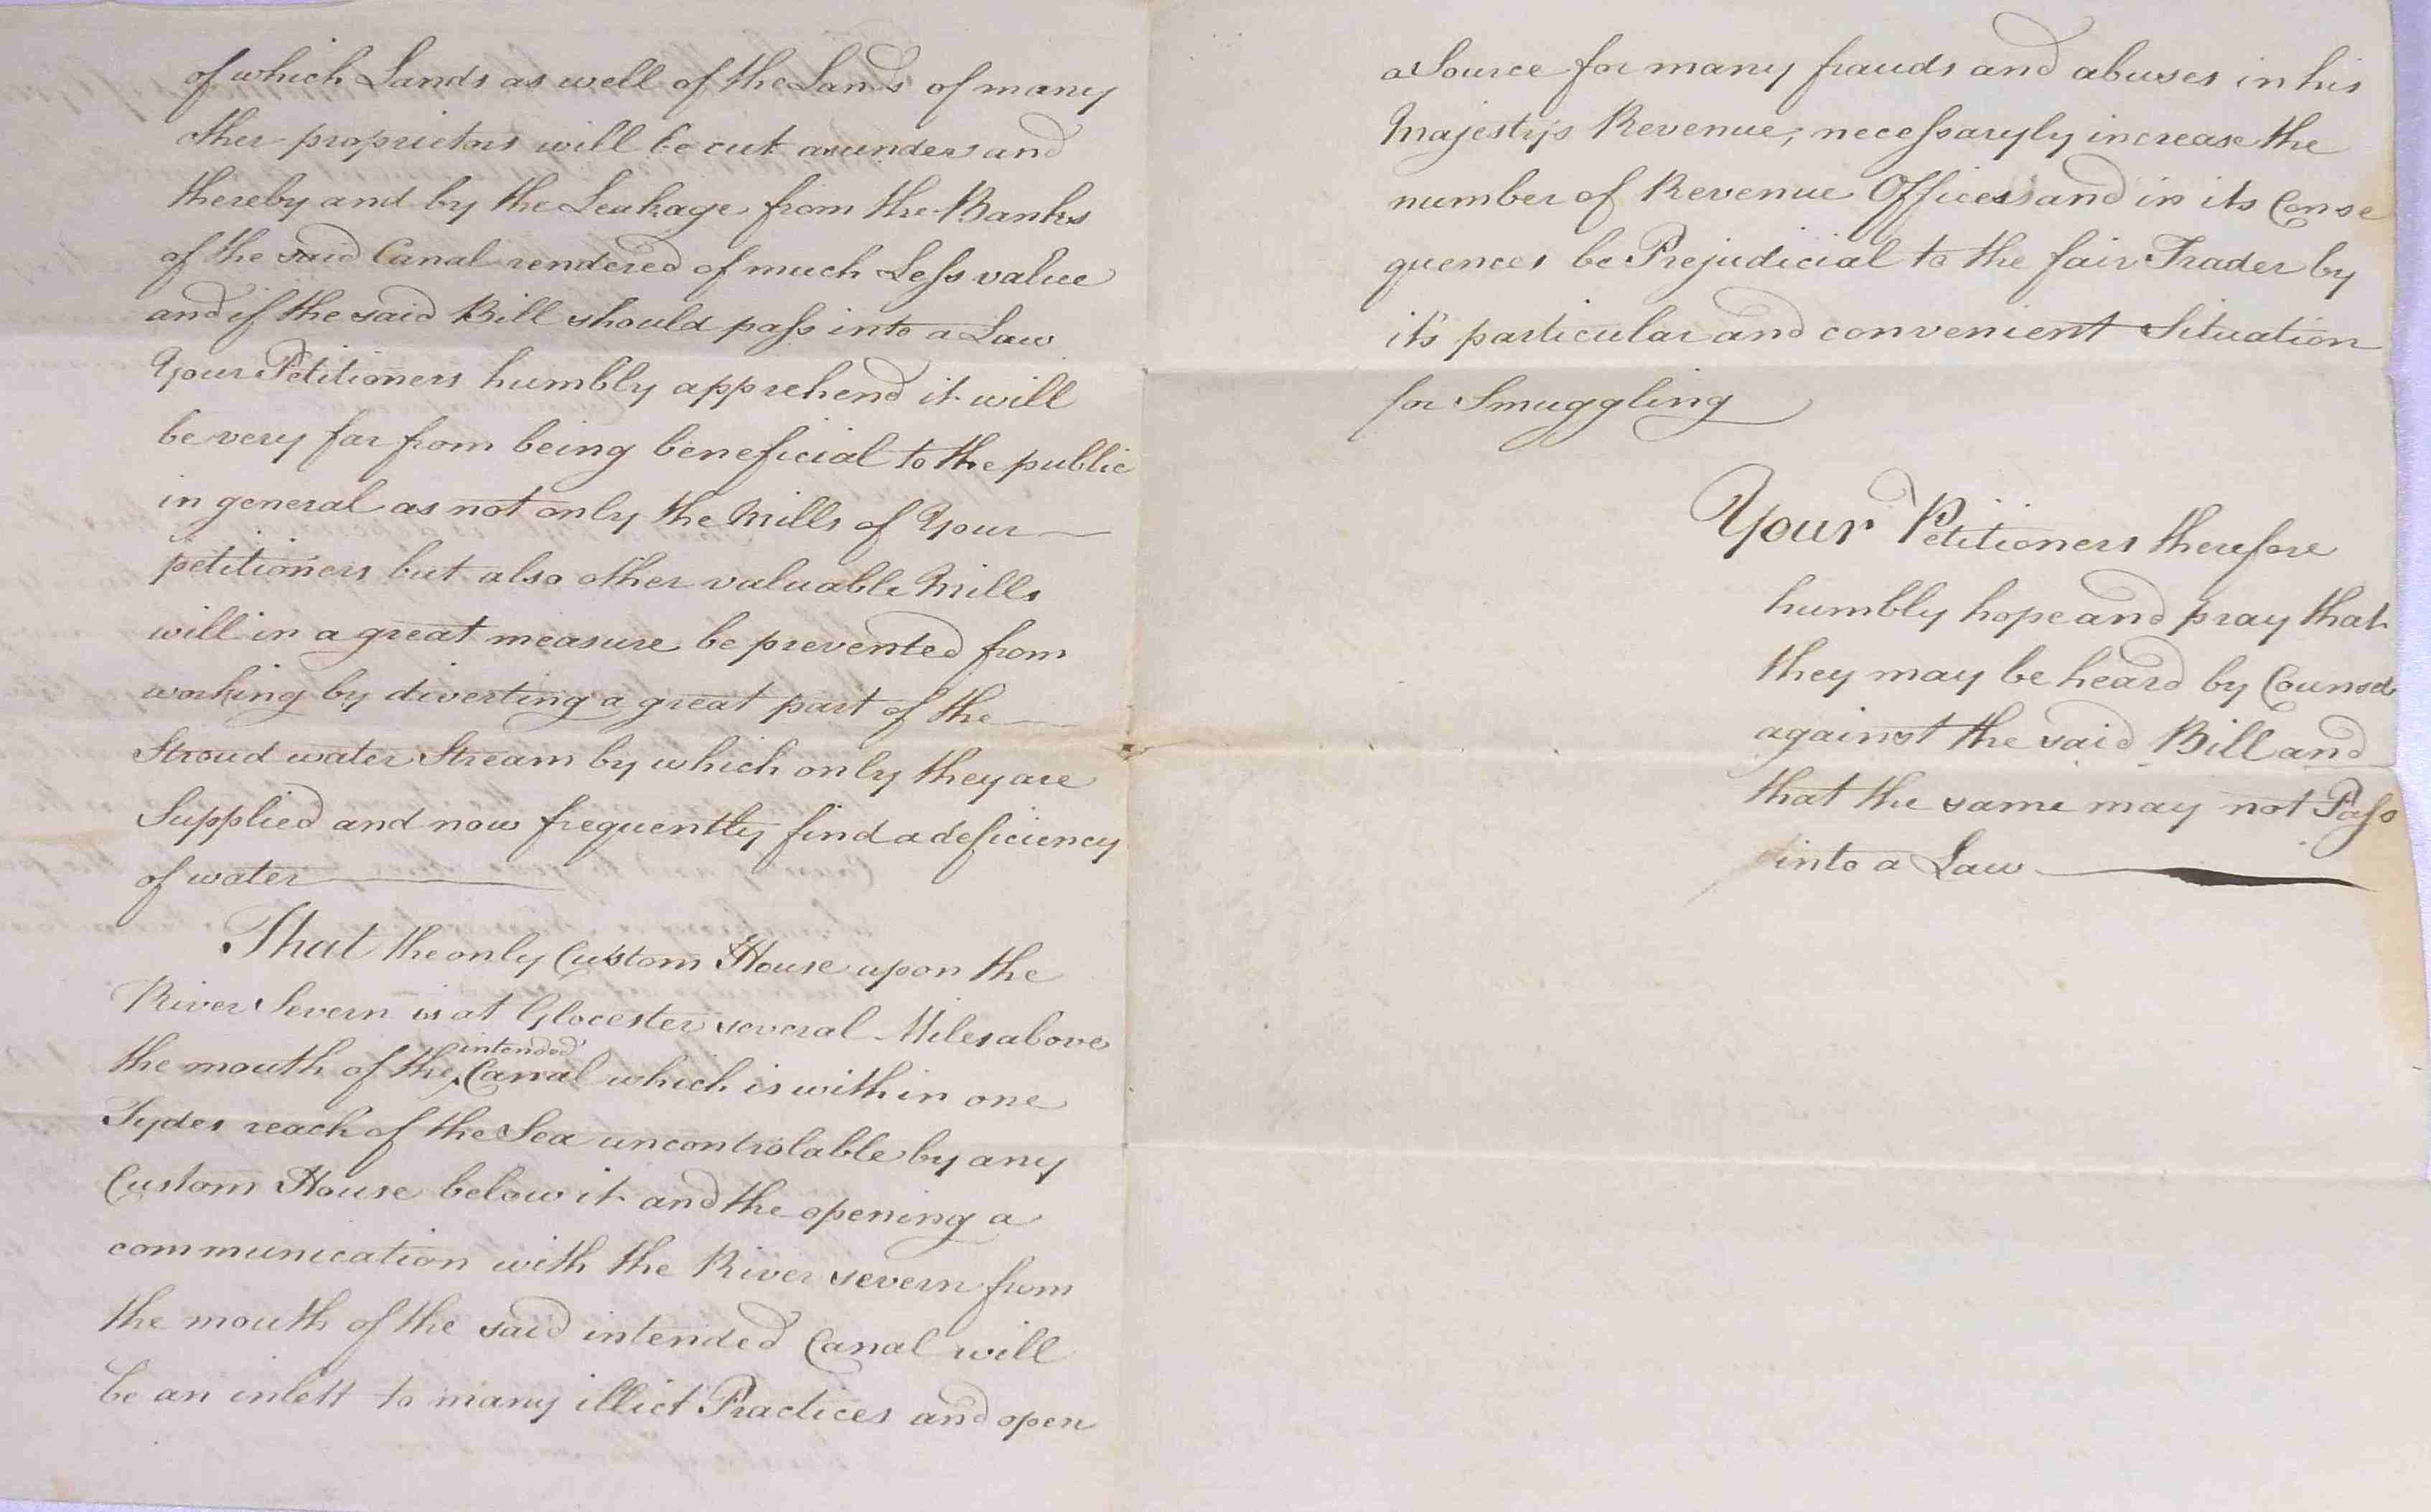 of which Lands as well of the Lands of many
other proprietors will be cut asunder and
thereby and by the Leakage from the Banks
of the said Canal rendered of much Less value
and if the said Bill should pass into a Law
Your Petitioners humbly apprehend it will
be very far from being beneficial to the public
in general as not only the Mills of Your
petitioners but also other valuable Mills
will in a great measure be prevented from
working by diverting a great part of the
Stroud water Stream by which only they are
Supplied and now frequently find a deficiency
of water
That the only Custom House upon the
River Severn is at Glocester several Miles above
the mouth of the intended Canal which is within one
Tydes reach of the Sea uncontrolable by any
Custom House below it and the opening a
communication with the River severn from
the mouth of the said intended Canal will
be an inlett to many illict Practices and open
a Source for many frauds and abuses in his
Majestys Revenue, necessaryly increase the
number of Revenue Officers and in its Conse
quences be Prejudicial to the fair Trader by
it's particular and convenient Situation
for Smuggling
Your Petitioners therefore
humbly hope and pray that
they may be heard by Counsel
against the said Bill and
that the same may not Pass
into a Law